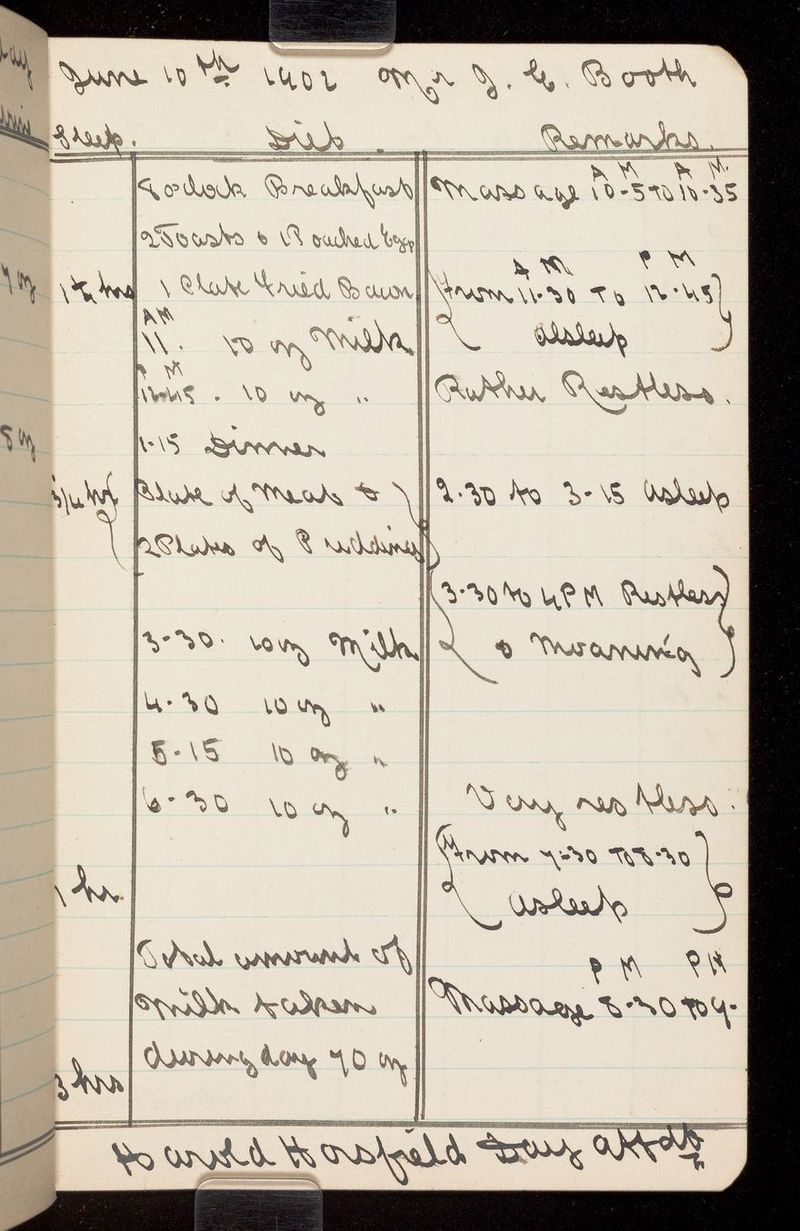 June 10th 1902 Mr J. E. Booth
Sleep. Diet. Remarks.
8 oclock Breakfast
2 Toasts & 1 Poached Egg
1 Plate Fried Bacon
1 1/4 hrs
AM
11. 10 oz Milk
PM
12-45. 10 oz "
1-15 Dinner
3/4 hr
Plate of Meat &
2 Plates of Puddings
3-30. 10 oz Milk
4-30 10 oz "
5-15 10 oz "
6-30 10 oz "
1 hr
Total amount of
Milk taken
during day 70 oz
3 hrs
A M A M.
Massage 10-5 to 10-35
A M P M
From 11-30 To 12-45
alsleep
Rather Restless.
2-30 to 3-15 asleep
3-30 to 4 PM Restless
& Moaning
Very restless.
From 7-30 To 8-30
asleep
P M P M
Massage 8-30 to 9-
Harold Horsfield Day Attdt
day
7 oz
8 oz